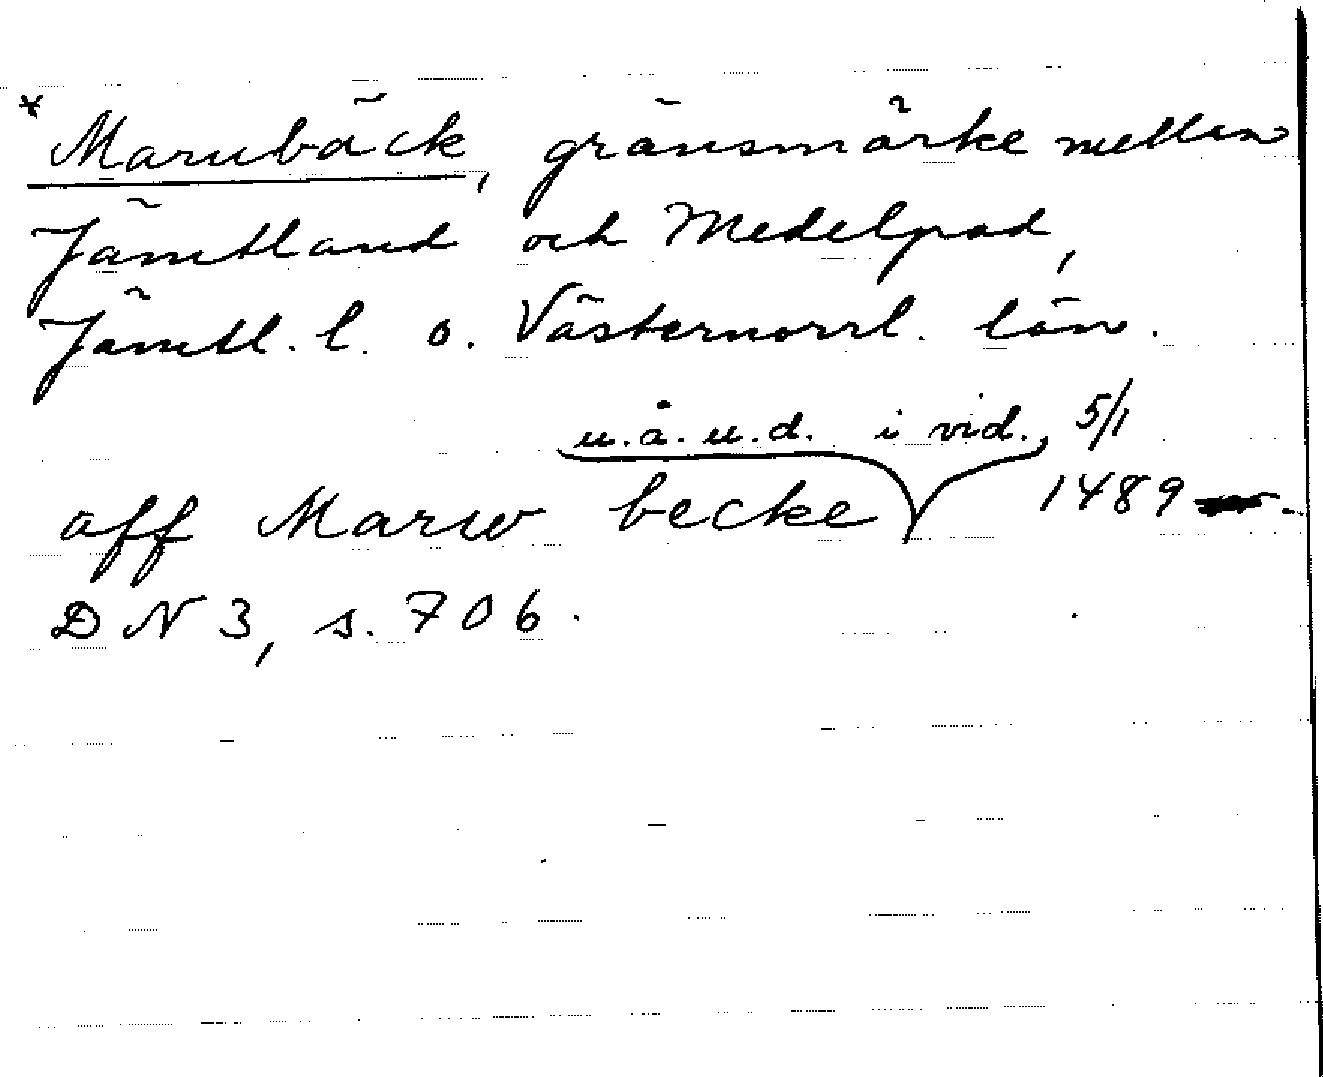 * Marubäck, gränsmärke mellan
Jämtland och Medelpad,
Jämtl. l. o. Västernorrl. län.
u.å.u.d. i vid. 5/1
aff Marw becke 1489.
DN 3, s. 706.